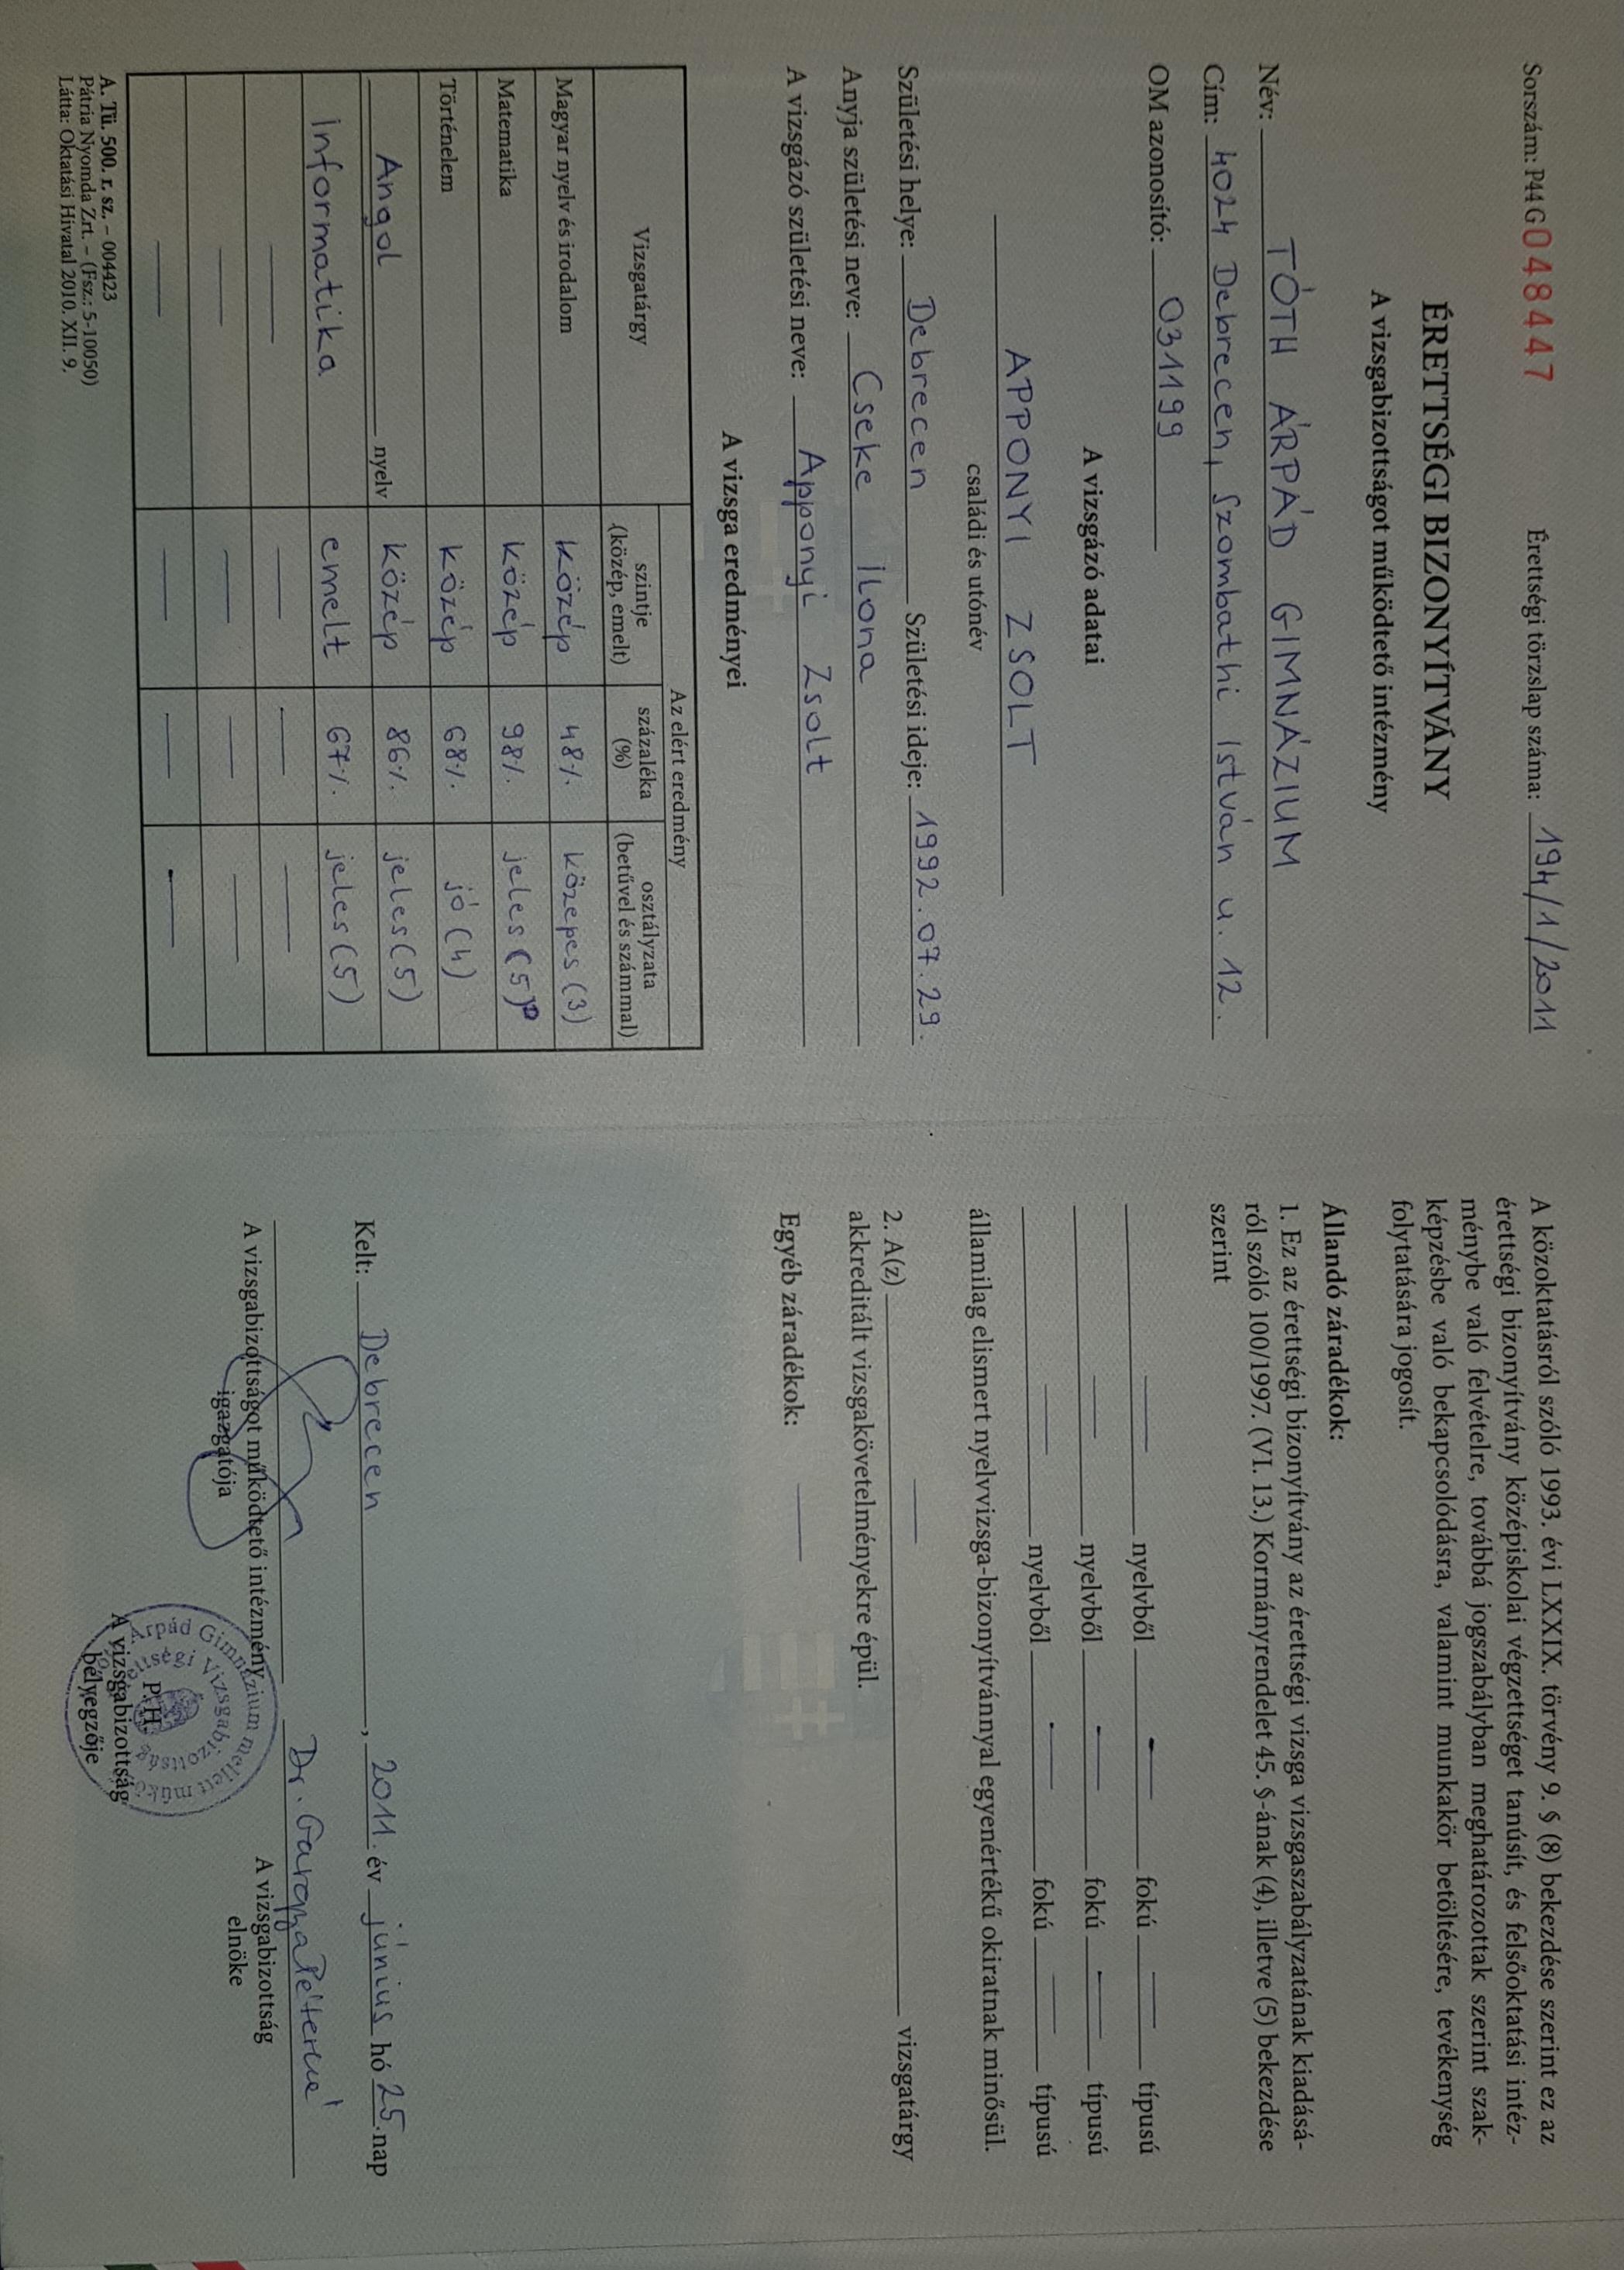 Sorszám: P44G048447 Érettségi törzslap száma: 194/1/2011
ÉRETTSÉGI BIZONYÍTVÁNY
A vizsgabizottságot működtető intézmény
Név: TÓTH ÁRPÁD GIMNÁZIUM
Cím: 4024 Debrecen, Szombathi István u. 12.
OM azonosító: 031199
A vizsgázó adatai
APPONYI ZSOLT
családi és utónév
Születési helye: Debrecen Születési ideje: 1992.07.29.
Anyja születési neve: Cseke Ilona
A vizsgázó születési neve: Apponyi Zsolt
A vizsga eredményei
Vizsgatárgy Az elért eredmény
szintje (közép, emelt) százaléka (%) osztályzata (betűvel és számmal)
Magyar nyelv és irodalom közép 48% közepes (3)
Matematika közép 98% jeles (5)
Történelem közép 68% jó (4)
Angol nyelv közép 86% jeles (5)
informatika emelt 67% jeles (5)
A. Tü. 500. r. sz. – 004423
Pátria Nyomda Zrt. – (Fsz.: 5-10050)
Látta: Oktatási Hivatal 2010. XII. 9.
A közoktatásról szóló 1993. évi LXXIX. törvény 9. § (8) bekezdése szerint ez az
érettségi bizonyítvány középiskolai végzettséget tanúsít, és felsőoktatási intéz-
ménybe való felvételre, továbbá jogszabályban meghatározottak szerint szak-
képzésbe való bekapcsolódásra, valamint munkakör betöltésére, tevékenység
folytatására jogosít.
Állandó záradékok:
1. Ez az érettségi bizonyítvány az érettségi vizsga vizsgaszabályzatának kiadásá-
ról szóló 100/1997. (VI. 13.) Kormányrendelet 45. §-ának (4), illetve (5) bekezdése
szerint
nyelvből fokú típusú
nyelvből fokú típusú
nyelvből fokú típusú
államilag elismert nyelvvizsga-bizonyítvánnyal egyenértékű okiratnak minősül.
2. A(z) vizsgatárgy
akkreditált vizsgakövetelményekre épül.
Egyéb záradékok:
Kelt: Debrecen, 2011. év június hó 25. nap
A vizsgabizottságot működtető intézmény
igazgatója
P.H.
A vizsgabizottság
bélyegzője
Dr. Péterné
A vizsgabizottság
elnöke
Árpád Gimnázium mellett
Vizsgabizottság